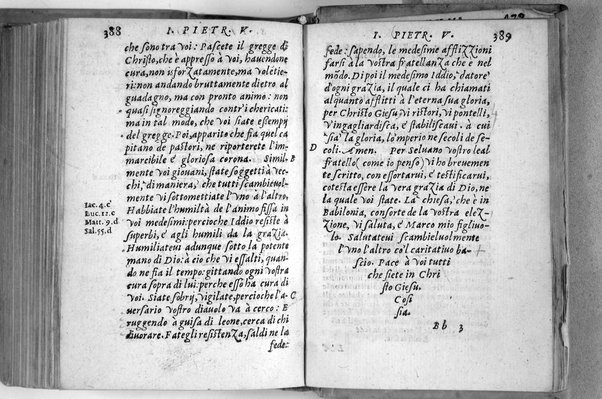 388 I. PIETR. V.
che sono tra voi: Pascete il gregge di
Christo, che è appresso à voi, hauendone
cura, non isforzatamente, ma volẽtie/
ri: non andando bruttamente dietro al
guadagno, ma con pronto animo: non
quasi signoreggiando contr'i chericati:
ma in tal modo, che voi siate esempj
del gregge. Poi, apparito che fia quel ca
pitano de pastori, ne riporterete l'im/
marcibile e gloriosa corona. Simil/
mente voi giouani, state soggetti à vec/
chi; di maniera, che tutti scambieuol/
mente vi sottomettiate l'uno à l'altro,
Habbiate l'humiltà de l'animo fissa in
voi medesimi: percioche Iddio resiste à
superbi, e agli humili da la grazia.
Humiliateui adunque sotto la potente
mano di Dio: à ciò che vi essalti, quan/
do ne fia il tempo: gittando ogni vostra
cura sopra di lui: perche esso ha cura di
voi. Siate sobrij, vigilate, percioche l'a/
uersario vostro diauolo và à cerco: E
ruggendo à guisa di leone, cerca di chi
diuorare. Fategli resistenza, saldi ne la
fede:
B
C
Iac. 4. c
Luc. 12. c
Matt. 9. d
Sal. 55. d
I. PIETR. V. 389
fede: sapendo, le medesime afflizzioni
farsi à la vostra fratellanza che è nel
mõdo. Di poi il medesimo Iddio, datore
d'ogni grazia, il quale ci ha chiamati
alquanto afflitti à l'eterna sua gloria,
per Christo Giesu, vi ristori, vi pontelli,
v'ingagliardisca, e stabiliscaui. à cui
sia la gloria, l'imperio ne secoli de se/
coli. Amen. Per Seluano vostro leal
fratello (come io penso) vi ho breuemen
te scritto, con essortarui, e testificarui,
cotesta essere la vera grazia di Dio, ne
la quale voi state. La chiesa, che è in
Babilonia, consorte de la vostra elez/
zione, vi saluta, e Marco mio figliuo/
lo. Salutateui scambieuolmente
l'uno l'altro co'l caritatiuo ba/
scio. Pace à voi tutti
che siete in Chri
sto Giesu.
Cosi
sia.
D
Bb 3